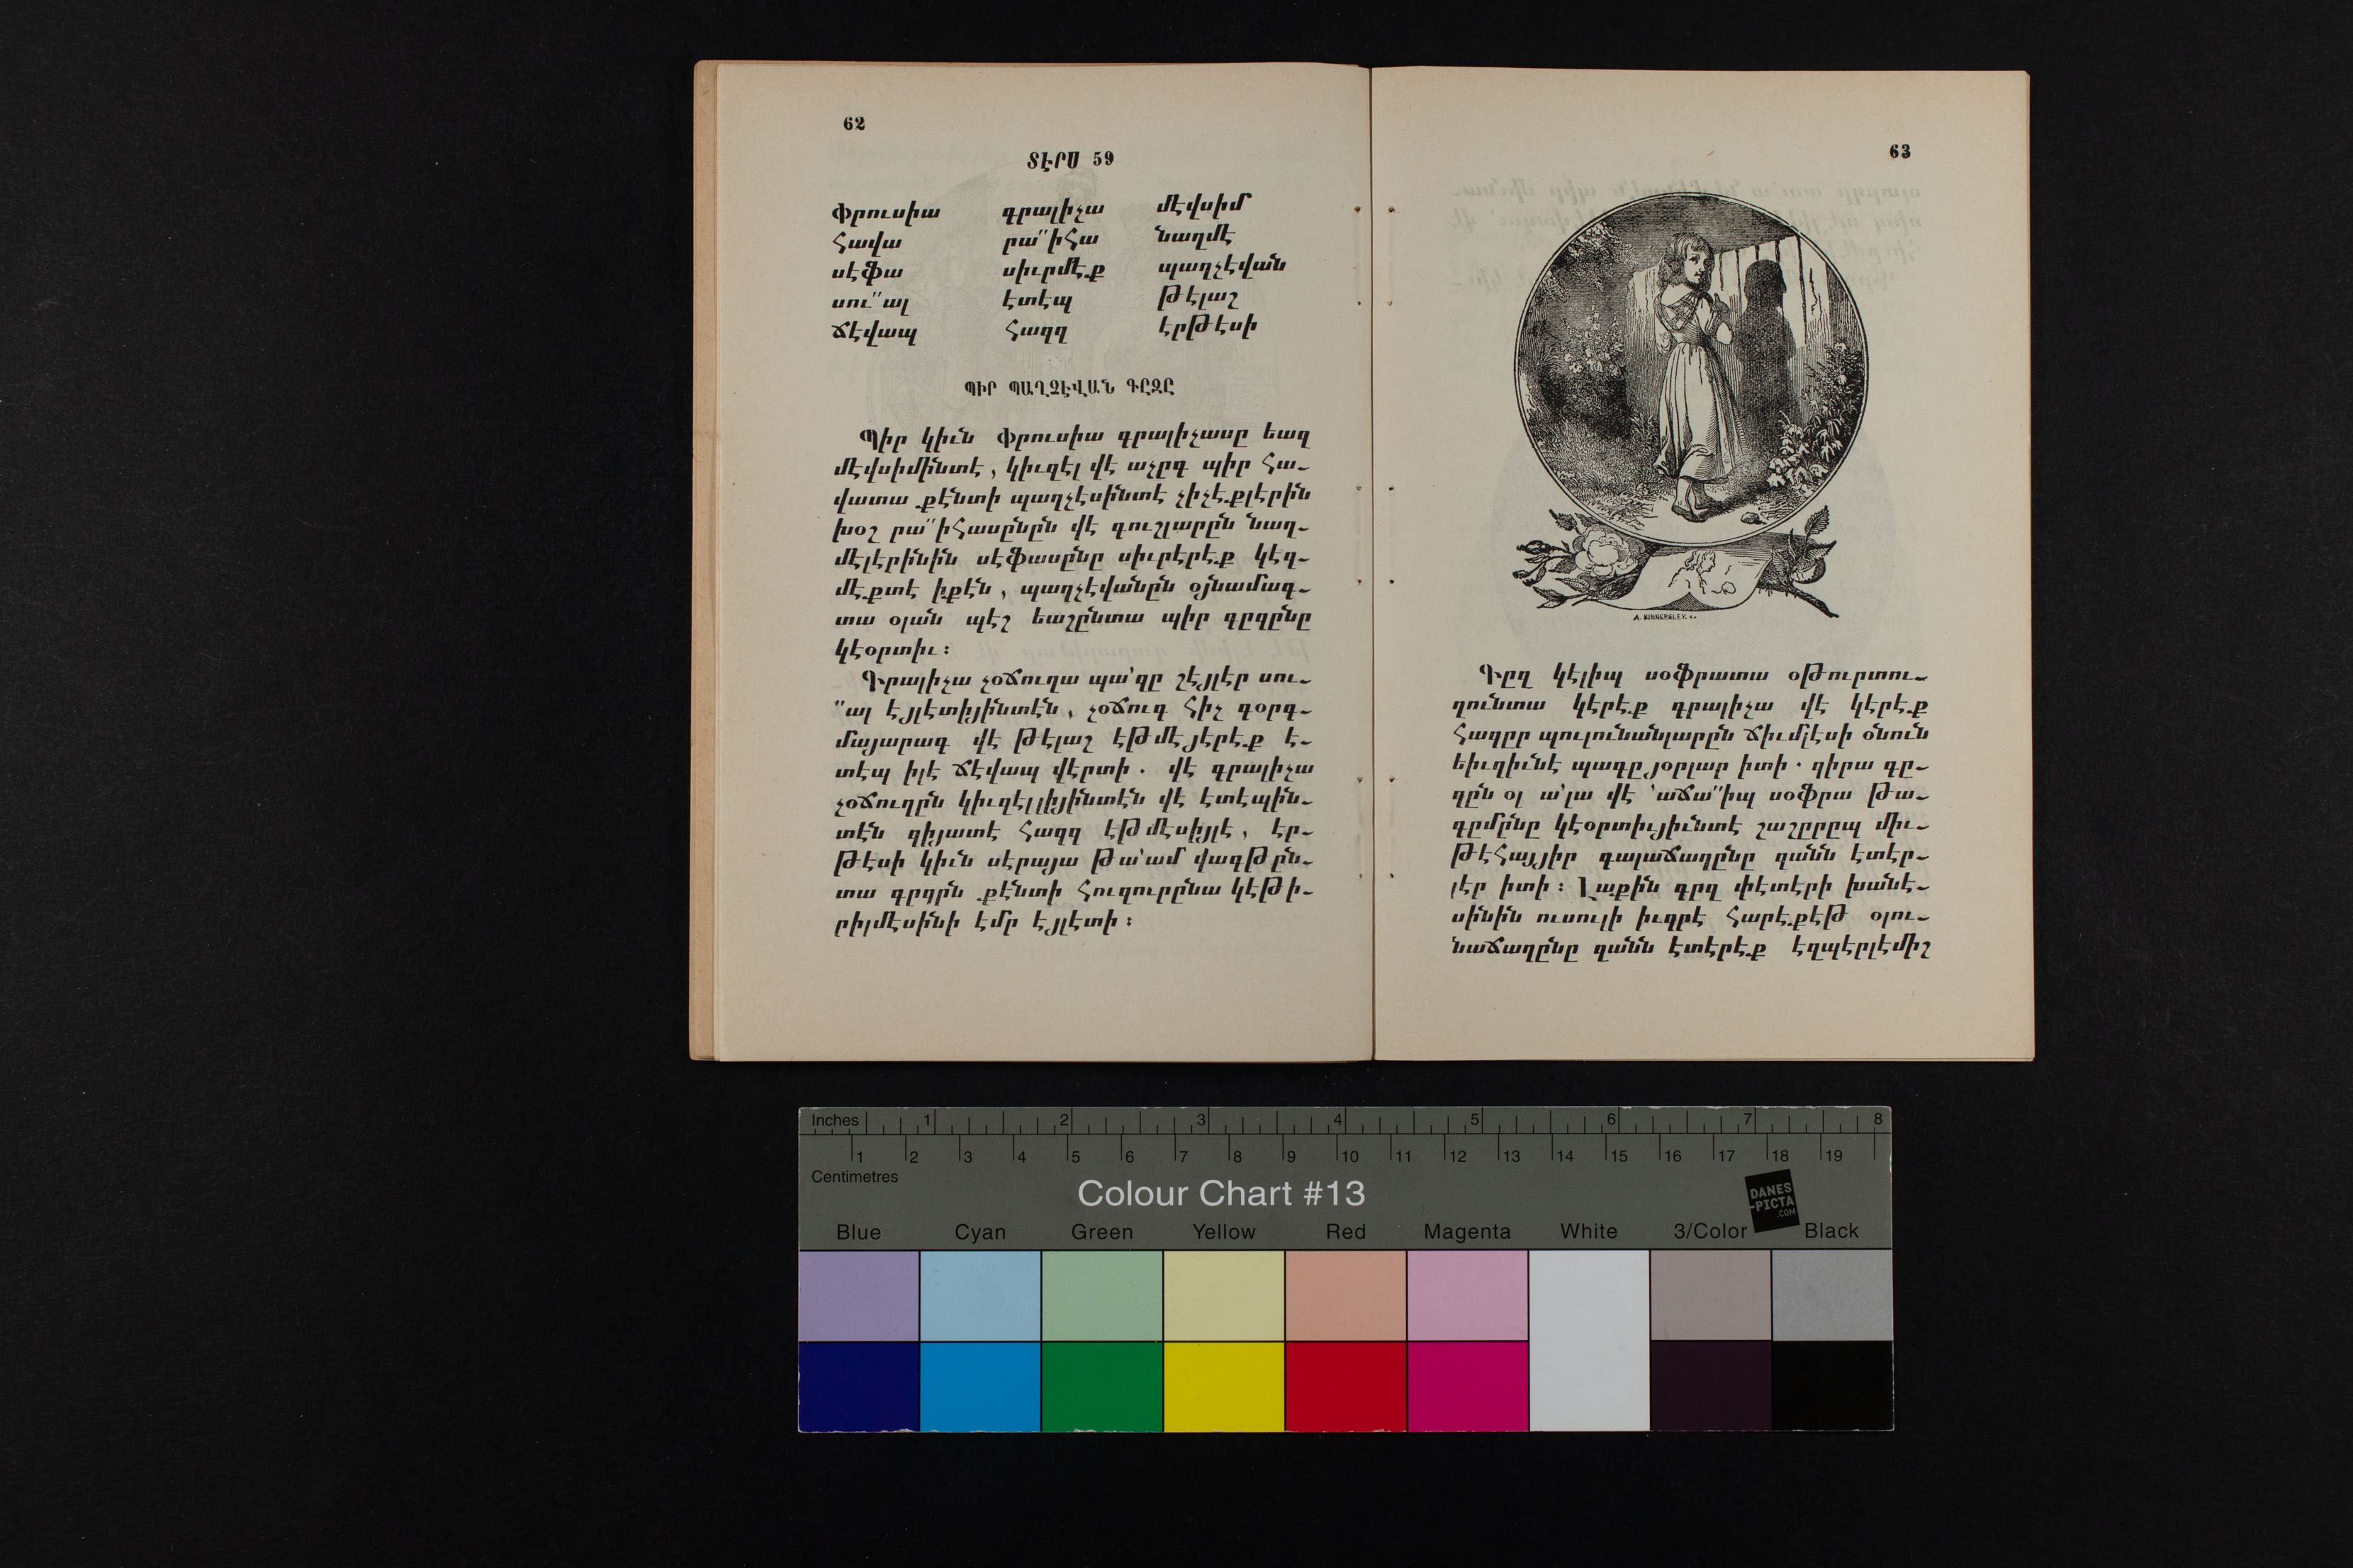 62
ՏԷՐՍ 59
փրուսիա գրալիչա մէվսիմ
հավա րա՛՛իհա նաղմէ
սէֆա սիւրմէք պաղչէվան
սու՛՛ալ էտէպ թէլաշ
ճէվապ հազզ էրթէսի
ՊԻՐ ՊԱՂՉԷՎԱՆ ԳԸԶԸ
Պիր կիւն փրուսիա գրալիչասը եազ
մէվսիմինտէ, կիւզէլ վէ աչըգ պիր հա-
վատա քէնտի պաղչէսինտէ չիչէքլէրին
խօշ րա՛՛իհասընըն վէ գուշլարըն նաղ-
մէլէրինին սէֆասընը սիւրէրէք կէզ-
մէքտէ իքէն, պաղչէվանըն օյնամագ-
տա օլան պէշ եաշընտա պիր գըզընը
կէօրտիւ։
Գրալիչա չօճուղա պա՛զը շէյլէր սու-
՛՛ալ էյլէտիյինտէն, չօճուգ հիչ գօրգ-
մայարագ վէ թէլաշ էթմէյէրէք է-
տէպ իլէ ճէվապ վէրտի. վէ գրալիչա
չօճուղըն կիւզէլլիյինտէն վէ էտէպին-
տէն զիյատէ հազզ էթմէսիյլէ, էր-
թէսի կիւն սէրայա թա՛ամ վագթըն-
տա գըզըն քէնտի հուզուրընա կէթի-
րիլմէսինի էմր էյլէտի։
63
A. KINNERSLEY. sc.
Գըզ կէլիպ սօֆրատա օթուրտու-
ղունտա կէրէք գրալիչա վէ կէրէք
հազըր պուլունանլարըն ճիւմլէսի օնուն
եիւզիւնէ պագըյօրլար իտի. զիրա գը-
զըն օլ ա՛լա վէ ՛աճա՛՛իպ սօֆրա թա-
գըմընը կէօրտիւյիւնտէ շաշըրըպ միւ-
թէհայյիր գալաճաղընը զանն էտէր-
լէր իտի։ Լաքին գըզ փէտէրի խանէ-
սինին ուսուլի իւզրէ հարէքէթ օլու-
նաճաղընը զանն էտէրէք էզպէրլէմիշ
Inches 1 2 3 4 5 6 7 8
1 2 3 4 5 6 7 8 9 10 11 12 13 14 15 16 17 18 19
Centimetres
Colour Chart #13
DANES
-PICTA
.COM
Blue Cyan Green Yellow Red Magenta White 3/Color Black